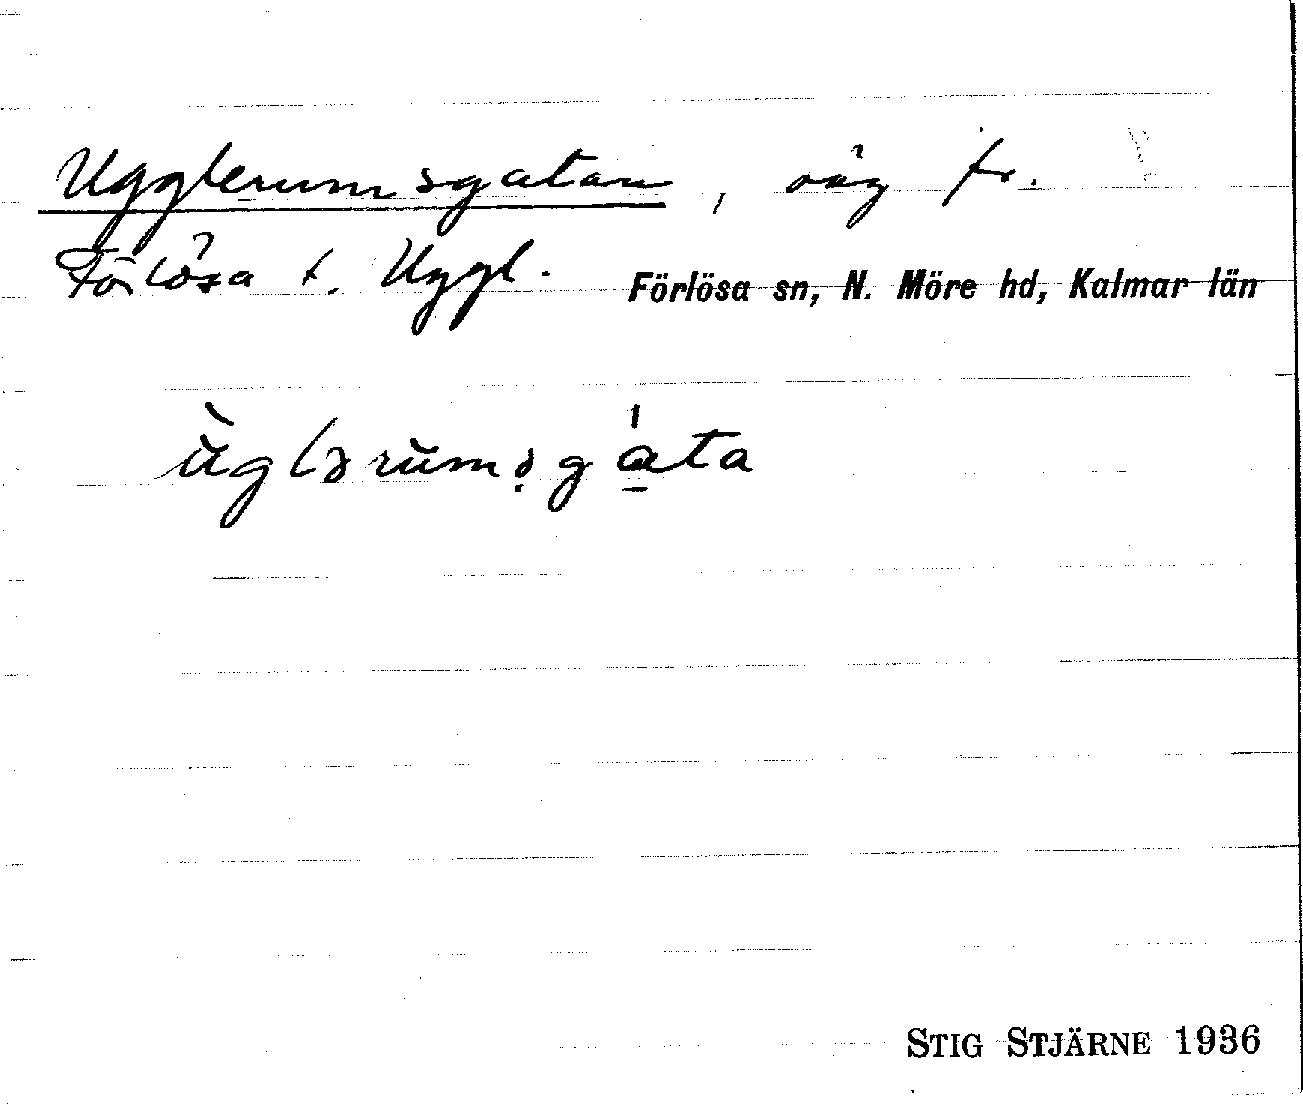 Ugglerumsgatan, väg fr.
Förlösa t. Uggl. Förlösa sn, N. Möre hd, Kalmar län
ùglərùmsgáta
STIG STJÄRNE 1936